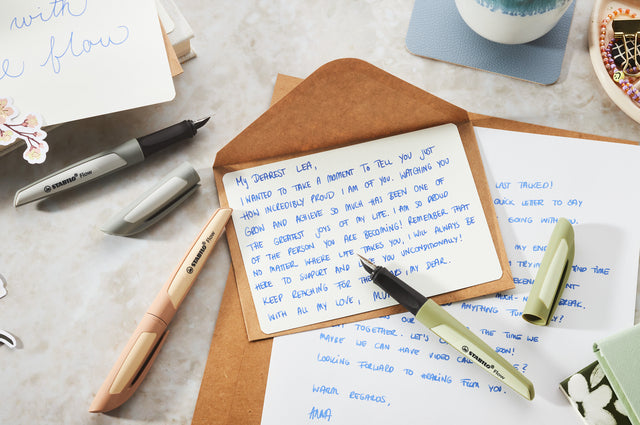 with
flow
STABILO flow
STABILO flow
My DEAREST LEA,
I WANTED TO TAKE A MOMENT TO TELL YOU JUST
HOW INCREDIBLY PROUD I AM OF YOU. WATCHING YOU
GROW AND ACHIEVE SO MUCH HAS BEEN ONE OF
THE GREATEST JOYS OF MY LIFE. I AM SO PROUD
OF THE PERSON YOU ARE BECOMING! REMEMBER THAT
NO MATTER WHERE LIFE TAKES YOU, I WILL ALWAYS BE
HERE TO SUPPORT AND YOU UNCONDITIONALLY!
KEEP REACHING FOR THE MY DEAR.
WITH ALL MY LOVE,
LAST TALKED!
QUICK LETTER TO SAY
GOING WITH YOU.
MY
TIME
BREAK.
ANYTHING
OUR THE TIME WE
TOGETHER. LET'S
MAYBE WE CAN HAVE VIDEO
LOOKING FORWARD TO HEARING FROM YOU.
WARM REGARDS,
ANNA
STABILO flow